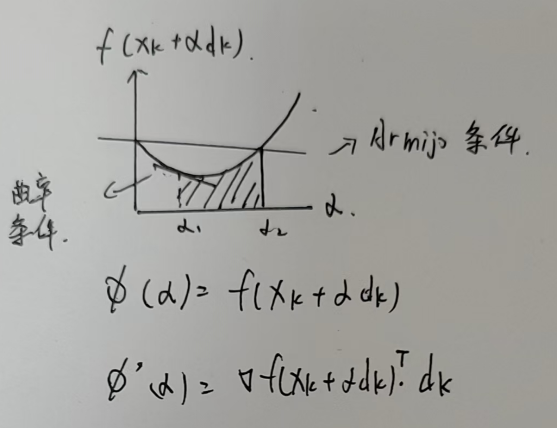 f(xk+αdk).
→ Armijo 条件.
曲率
条件.
α1 α2 α.
φ(α)= f(xk+αdk)
φ'(α)= ∇f(xk+αdk)ᵀ· dk